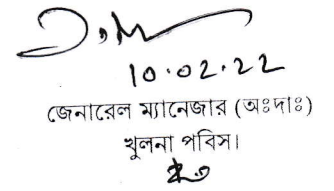 10.02.22
জেনারেল ম্যানেজার (অঃদাঃ)
খুলনা পবিস।